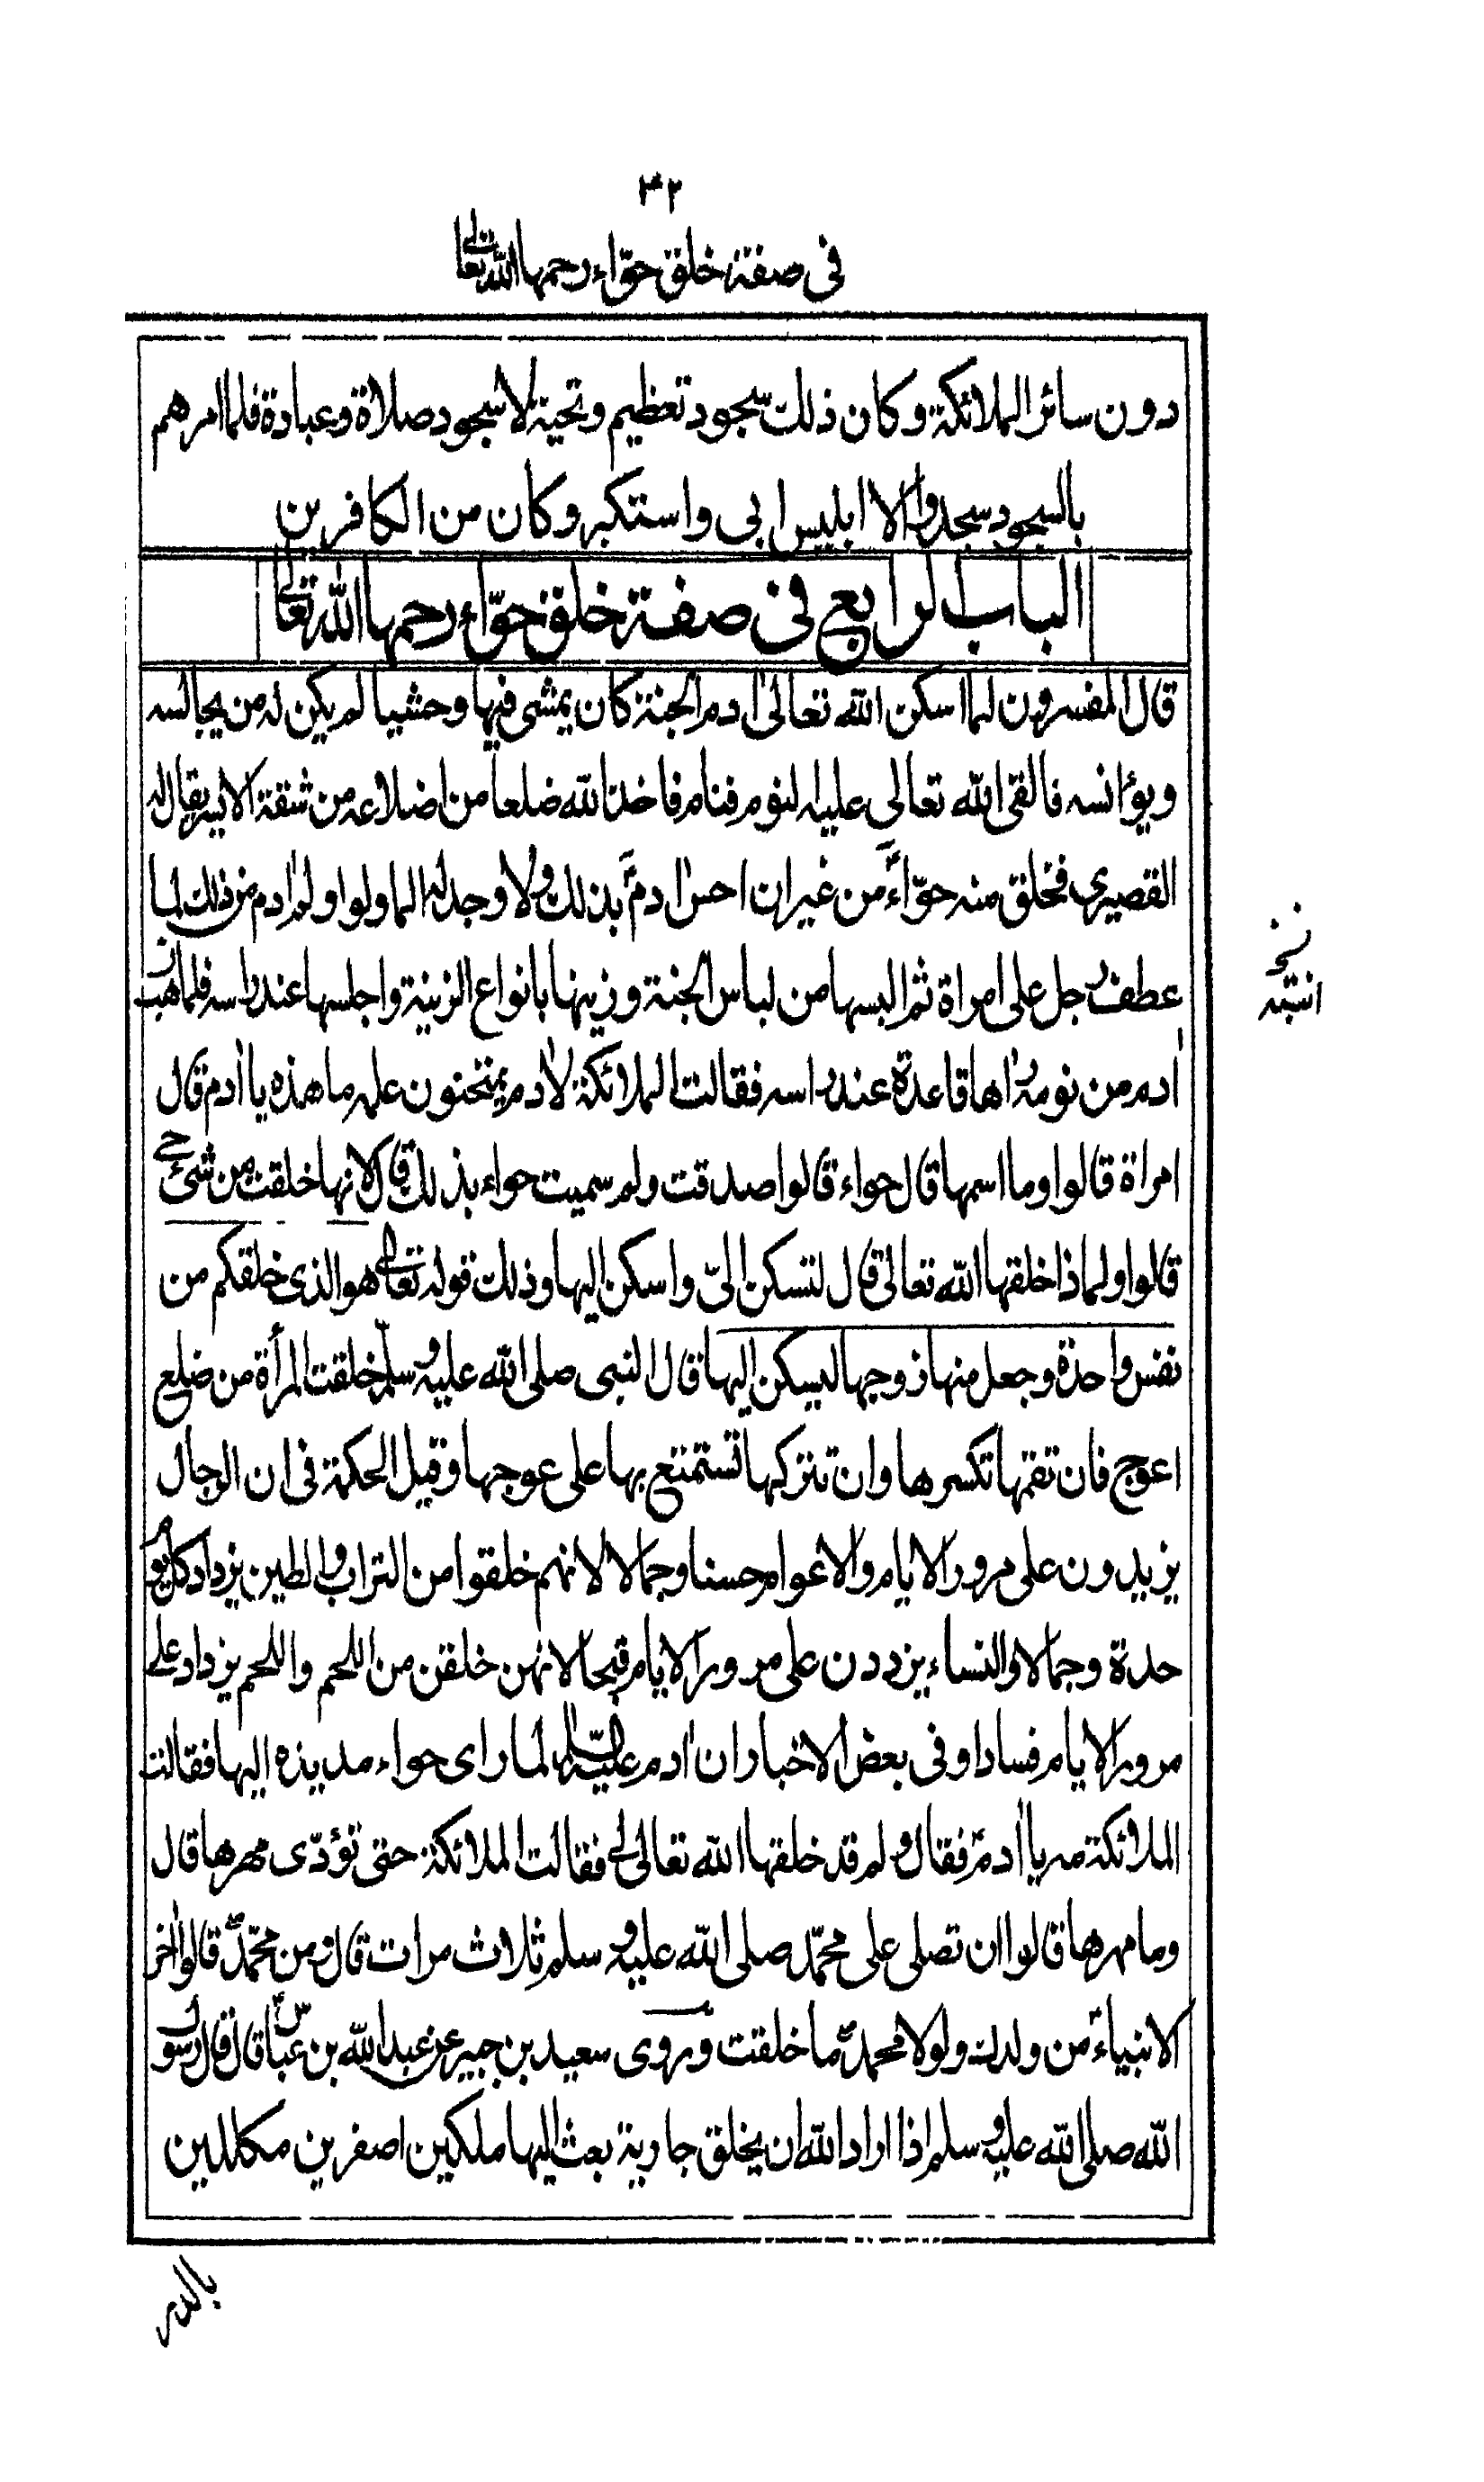 ٣٢
فی صفة خلق حوّاء رحمها الله تعالی
دون سائر الملائكة وكان ذلك سجود تعظیم وتحیة لا سجود صلاة وعبادة فلما امرهم
بالسجود سجدوا الا ابلیس ابی واستكبر وكان من الكافرین
الباب الرابع فی صفة خلق حوّاء رحمها الله تعالی
قال المفسرون لما اسكن الله تعالی اٰدم الجنة كان یمشی فیها وحشیا لم یكن له من یجالسه
ویؤانسه فالقی الله تعالی علیه النوم فنام فاخذ الله ضلعا من اضلاعه من شقة الایسر یقال له
القصیری فخلق منه حوّاءؑ من غیر ان احس اٰدمؑ بذلك ولا وجد له الما ولو الم اٰدم من ذلك لما
عطف رجل علی امراة ثم البسها من لباس الجنة وزینها بانواع الزینة واجلسها عند راسه فلما هب
اٰدم من نومه راٰها قاعدة عند راسه فقالت الملائكة لاٰدم یمتحنون علمه ما هذه یا اٰدم قال
امراة قالوا وما اسمها قال حواء قالوا صدقت ولم سمیت حواء بذلك قال لانها خلقت من شیٔ حی
قالوا ولماذا خلقها الله تعالی قال لتسكن الیّ واسكن الیها وذلك قوله تعالی هو الذی خلقكم من
نفس واحدة وجعل منها زوجها لیسكن الیها قال النبی صلی الله علیه وسلّم خلقت المرأة من ضلع
اعوج فان تقمها تكسرها وان تتركها تستمتع بها علی عوجها وقیل الحكمة فی ان الرجال
یزیدون علی مرور الایام والاعوام حسنا وجمالا لانهم خلقوا من التراب والطین یزداد كل یوم
حدة وجمالا والنساء یزددن علی مرور الایام قبحا لانهن خلقن من اللحم واللحم یزداد علی
مرور الایام فسادا وفی بعض الاخبار ان اٰدم علیه السلام لما رای حواء مد یده الیها فقالت
الملائكة مه یا اٰدمؑ فقال ولم قد خلقها الله تعالی لی فقالت الملائكة حتی تؤدّی مهرها قال
وما مهرها قالوا ان تصلی علی محمّد صلی الله علیه وسلم ثلاث مرات قال ومن محمّدؐ قالوا اٰخر
الانبیاءؑ من ولدك ولولا محمدؐ ما خلقت وروی سعید بن جبیر عن عبد الله بن عباسؓ قال قال رسول
الله صلی الله علیه وسلم اذا اراد الله ان یخلق جاریة بعث الیها ملكین اصفرین مكللین
انتبه
بالدر